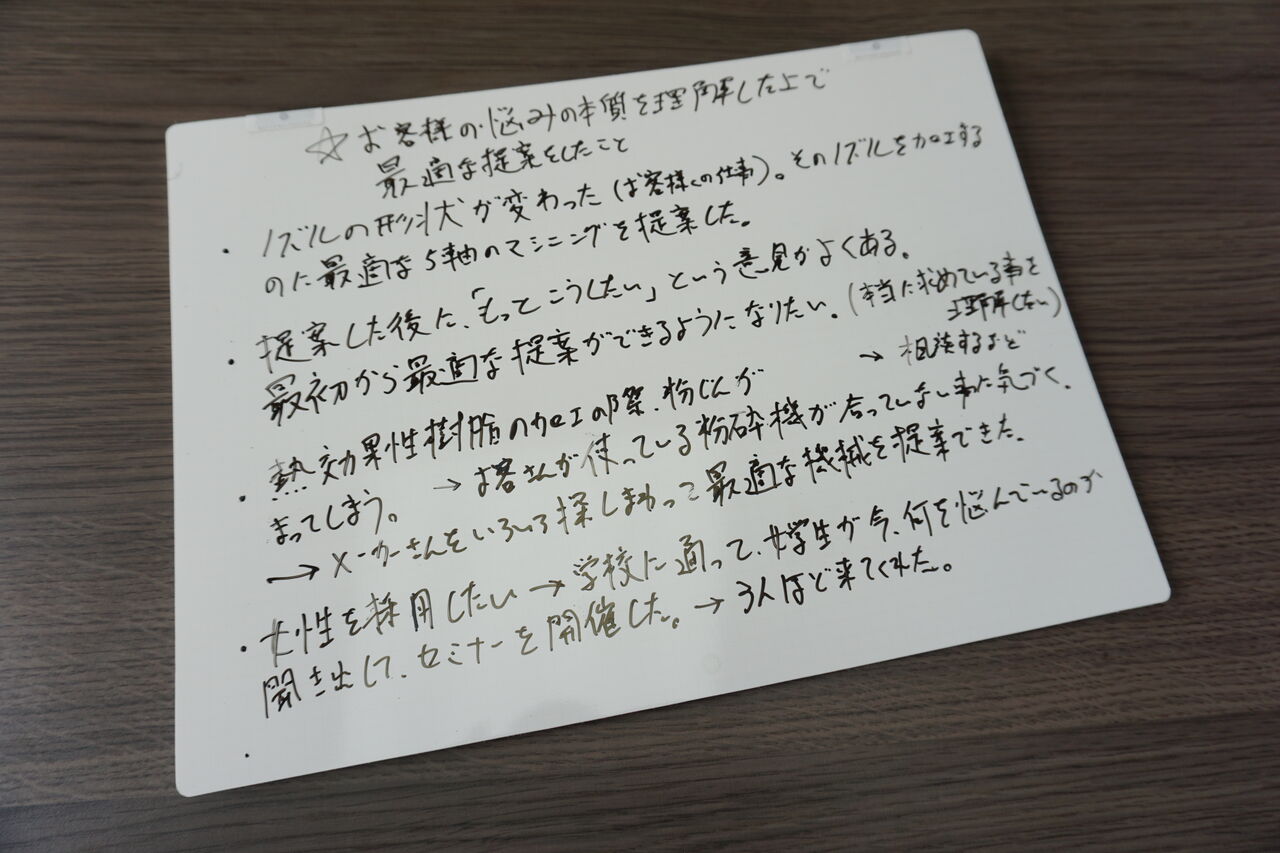 ☆お客様の悩みの本質を理解した上で
最適な提案をしたこと
・ノズルの形状が変わった(お客様の仕事)。そのノズルを加工する
のに最適な5軸のマシニングを提案した。
・提案した後に、「もってこうしたい」という意見がよくある。
最初から最適な提案ができるようになりたい。(本当に求めている事を
理解したい)
→ 相談するなど
・熱効果性樹脂の加工の際、粉じんが
まってしまう。 → お客さんが使っている粉砕機が合っていない事に気づく。
→ メーカーさんをいろいろ探しまわって最適な機械を提案できた。
・女性を採用したい → 学校に通って、女学生が今、何を悩んでいるのか
聞き出して、セミナーを開催した。→ 3人ほど来てくれた。
・